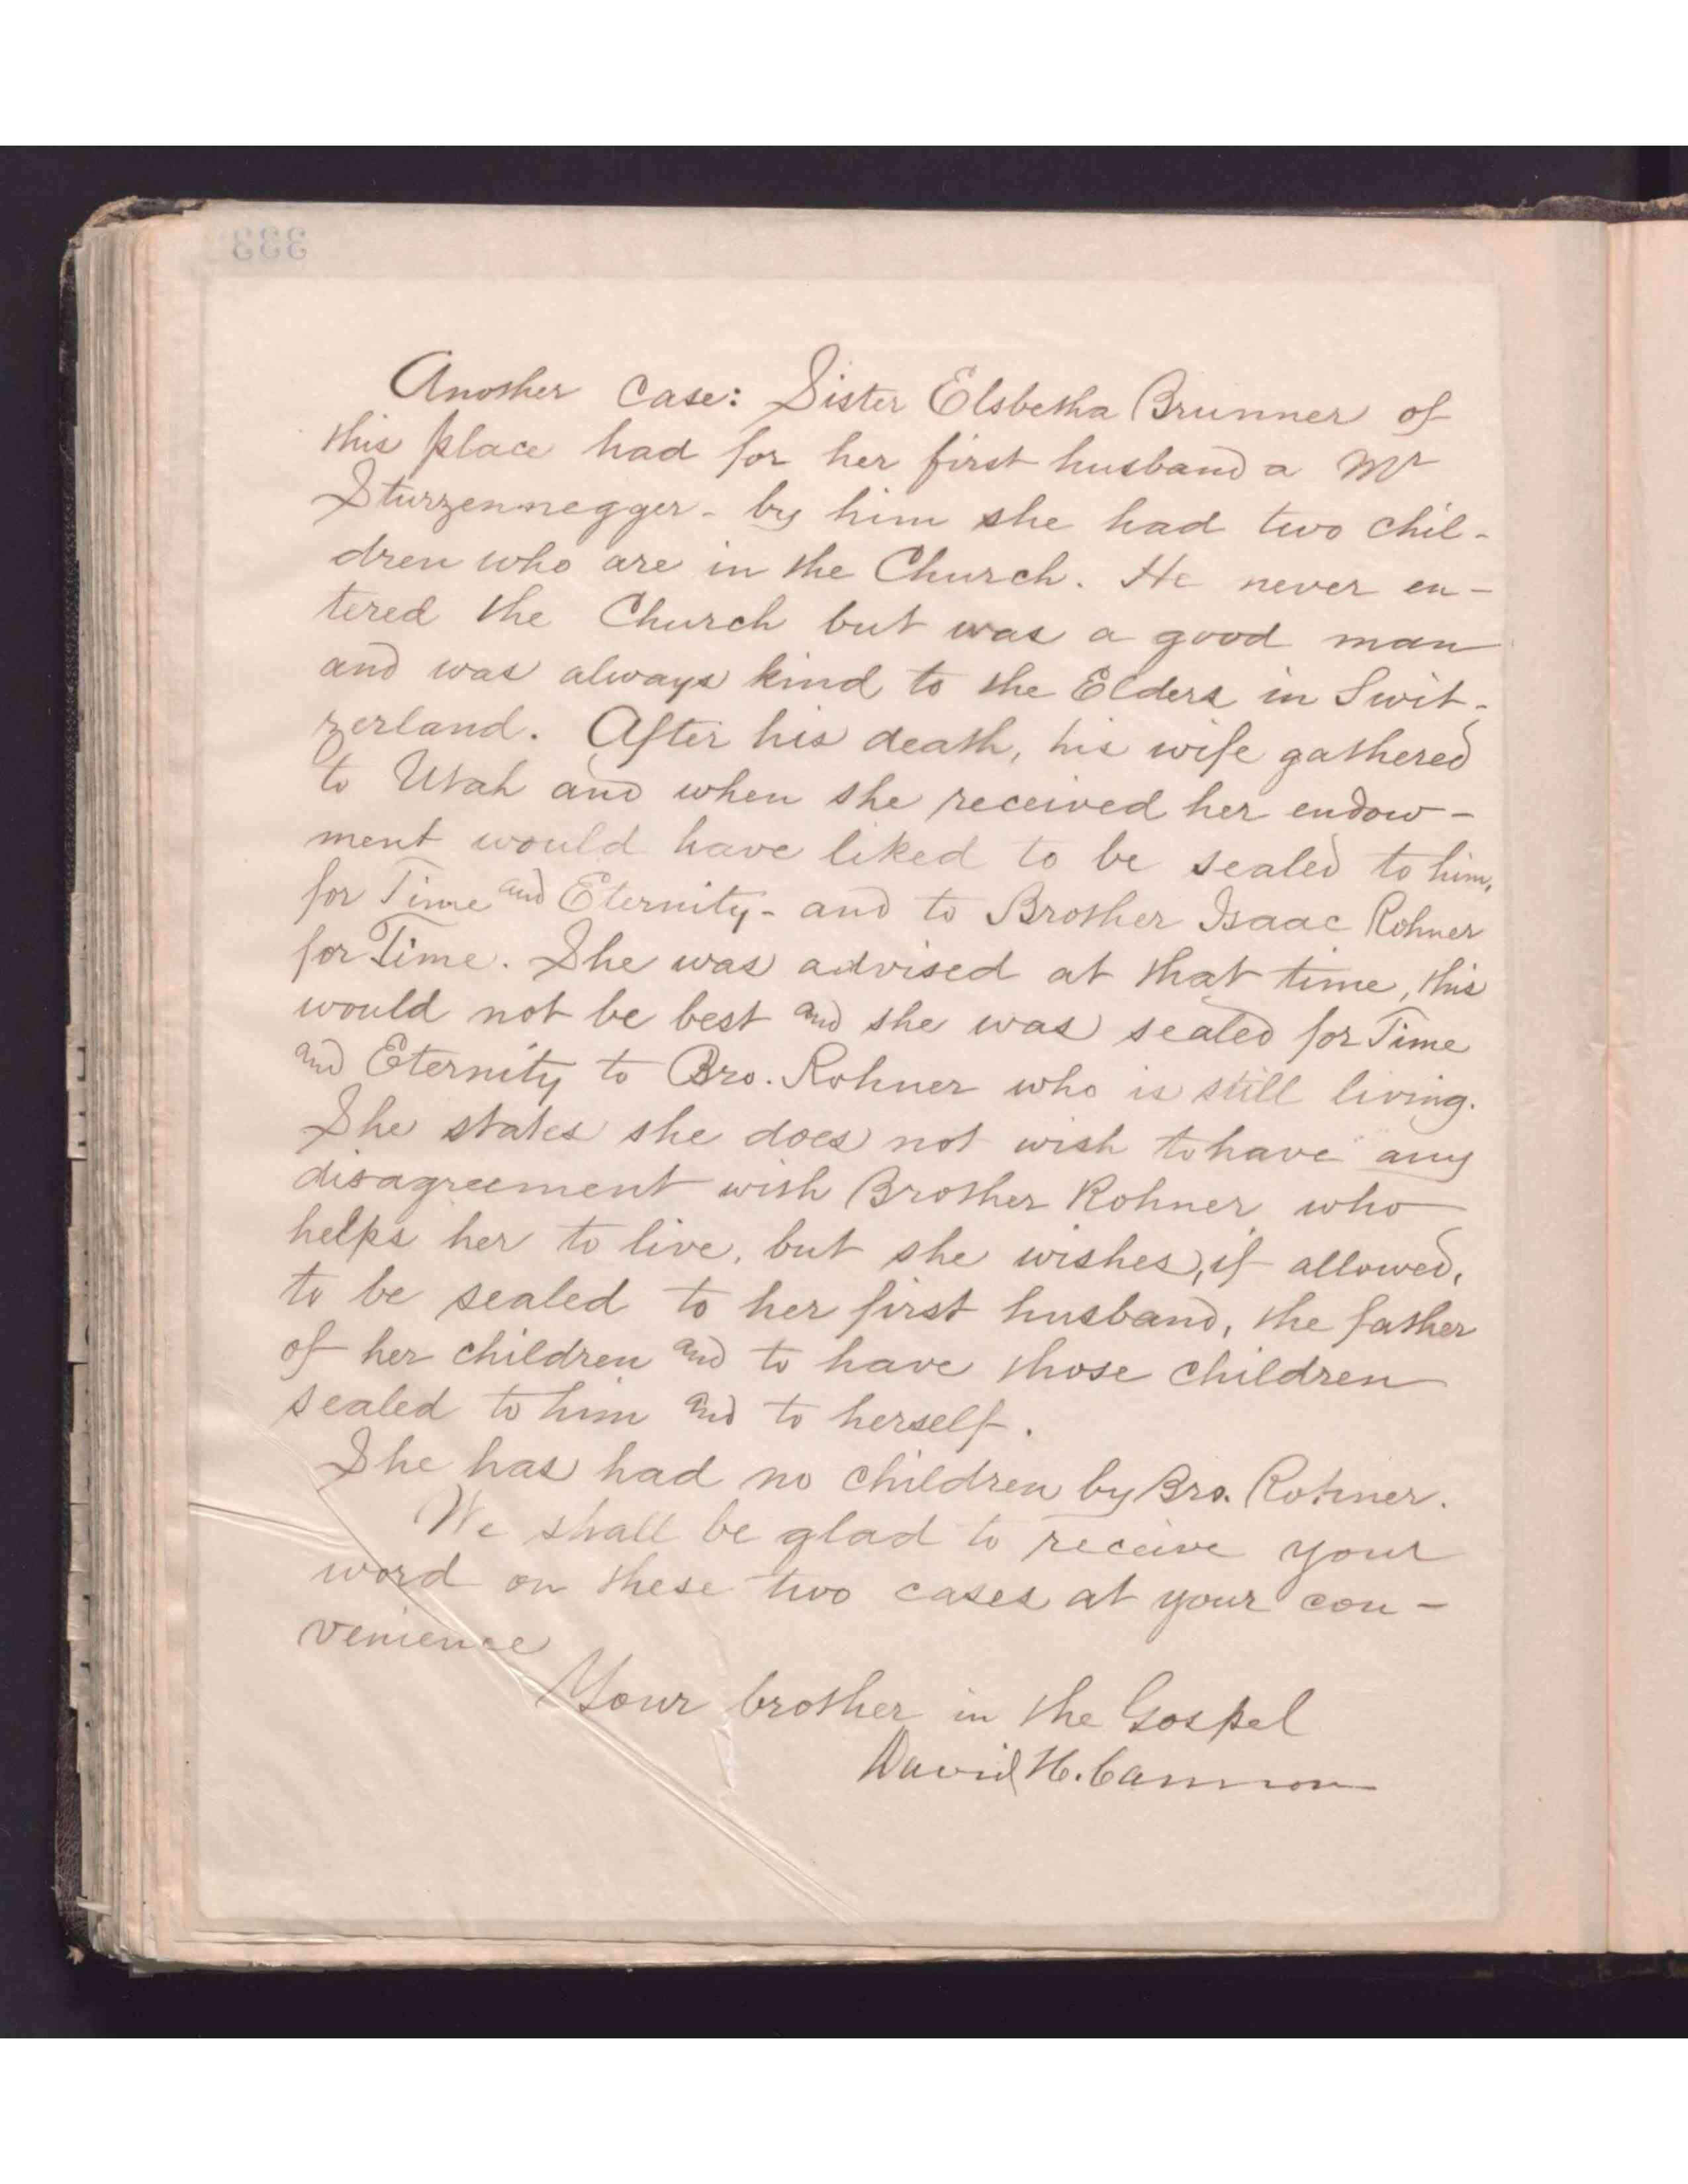 333
Another case: Sister Elsbetha Brunner of
this place had for her first husband a Mr
Sturzennegger - by him she had two chil-
dren who are in the Church. He never en-
tered the Church but was a good man
and was always kind to the Elders in Swit-
zerland. After his death, his wife gathered
to Utah and when she received her endow-
ment would have liked to be sealed to him,
for Time and Eternity - and to Brother Isaac Rohner
for Time. She was advised at that time, this
would not be best and she was sealed for Time
and Eternity to Bro. Rohner who is still living.
She states she does not wish to have any
disagreement with Brother Rohner who
helps her to live, but she wishes, if allowed,
to be sealed to her first husband, the father
of her children and to have those children
sealed to him and to herself.
She has had no children by Bro. Rohner.
We shall be glad to receive your
word on these two cases at your con-
venience
Your brother in the Gospel
David H. Cannon